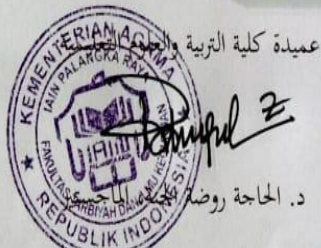 عميدة كلية التربية والعلوم التعليمية
KEMENTERIAN AGAMA
IAIN PALANGKA RAYA
FAKULTAS TARBIYAH DAN ILMU KEGURUAN
REPUBLIK INDONESIA
د. الحاجة روضة الجنة، الماجستير